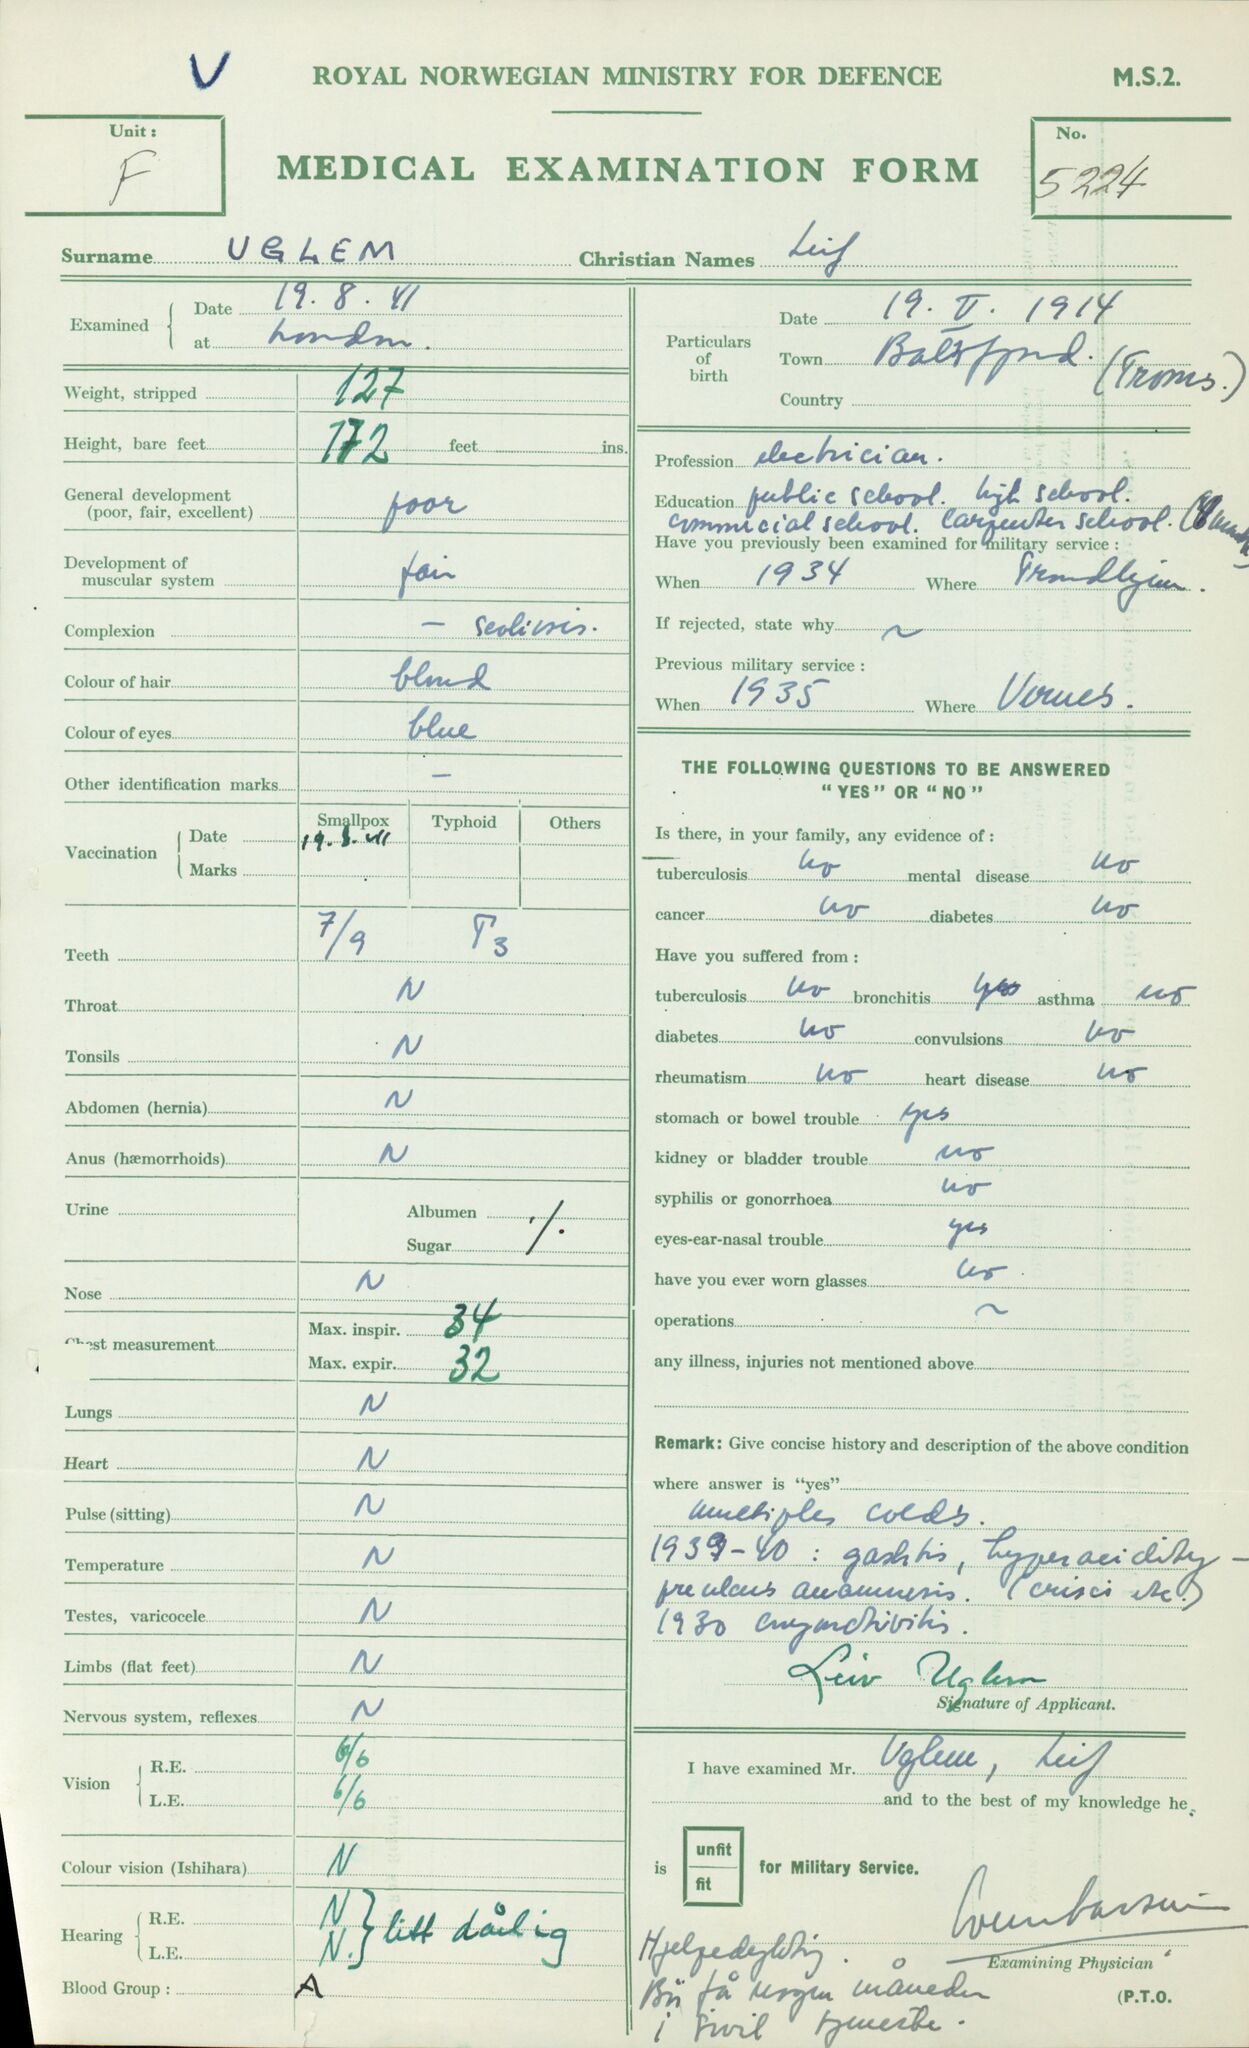 V
ROYAL NORWEGIAN MINISTRY FOR DEFENCE
M.S.2.
Unit :
F
MEDICAL EXAMINATION FORM
No.
5224
Surname UGLEM
Christian Names Leif
Examined
Date 19. 8. 41
at London.
Weight, stripped 127
Height, bare feet 172 feet ins.
General development
(poor, fair, excellent) poor
Development of
muscular system fair
Complexion — scoliosis.
Colour of hair blond
Colour of eyes blue
Other identification marks —
Vaccination
Smallpox Typhoid Others
Date 19. 8. 41
Marks
Teeth 7/9 T3
Throat N
Tonsils N
Abdomen (hernia) N
Anus (hæmorrhoids) N
Urine Albumen
Sugar ./.
Nose N
Chest measurement
Max. inspir. 34
Max. expir. 32
Lungs N
Heart N
Pulse (sitting) N
Temperature N
Testes, varicocele N
Limbs (flat feet) N
Nervous system, reflexes N
Vision
R.E. 6/6
L.E. 6/6
Colour vision (Ishihara) N
Hearing
R.E. N
L.E. N. } litt dårlig
Blood Group : A
Particulars
of
birth
Date 19. V. 1914
Town Balsfjord. (Troms.)
Country
Profession electrician.
Education public school. high school.
commercial school. Carpenter school.
Have you previously been examined for military service :
When 1934 Where Trondhjem.
If rejected, state why ~
Previous military service :
When 1935 Where Vernes.
THE FOLLOWING QUESTIONS TO BE ANSWERED
"YES" OR "NO"
Is there, in your family, any evidence of :
tuberculosis no mental disease no
cancer no diabetes no
Have you suffered from :
tuberculosis no bronchitis yes asthma no
diabetes no convulsions no
rheumatism no heart disease no
stomach or bowel trouble yes
kidney or bladder trouble no
syphilis or gonorrhoea no
eyes-ear-nasal trouble yes
have you ever worn glasses no
operations ~
any illness, injuries not mentioned above
Remark: Give concise history and description of the above condition
where answer is "yes"
multiples colds.
1939-40 : gastritis, hyperacidity –
anamnesis. (crisis etc.)
1930 conjunctivitis.
Leiv Uglem
Signature of Applicant.
I have examined Mr. Uglem, Leif
and to the best of my knowledge he
is unfit
fit
for Military Service.
Examining Physician
Hjelpedyktig.
Bör få nogen måneder
i sivil tjeneste.
(P.T.O.